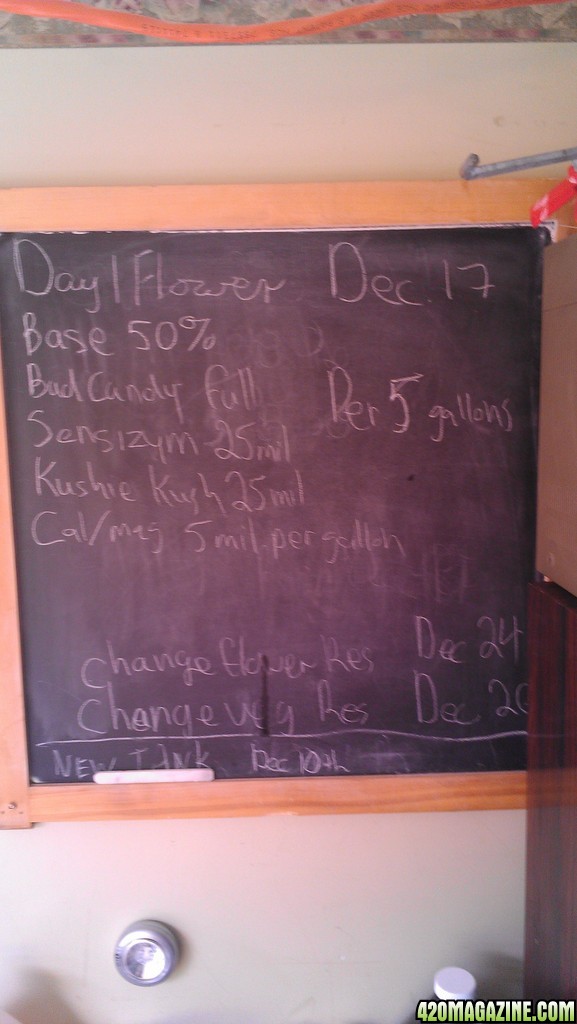 Day 1 Flower Dec. 17
Base 50%
Bud Candy full
Per 5 gallons
Sensizym 25mil
Kushie Kush 25mil
Cal/mag 5 mil per gallon
Change flower Res Dec 24
Change veg Res Dec 20
NEW TANK Dec 10th
420MAGAZINE.COM